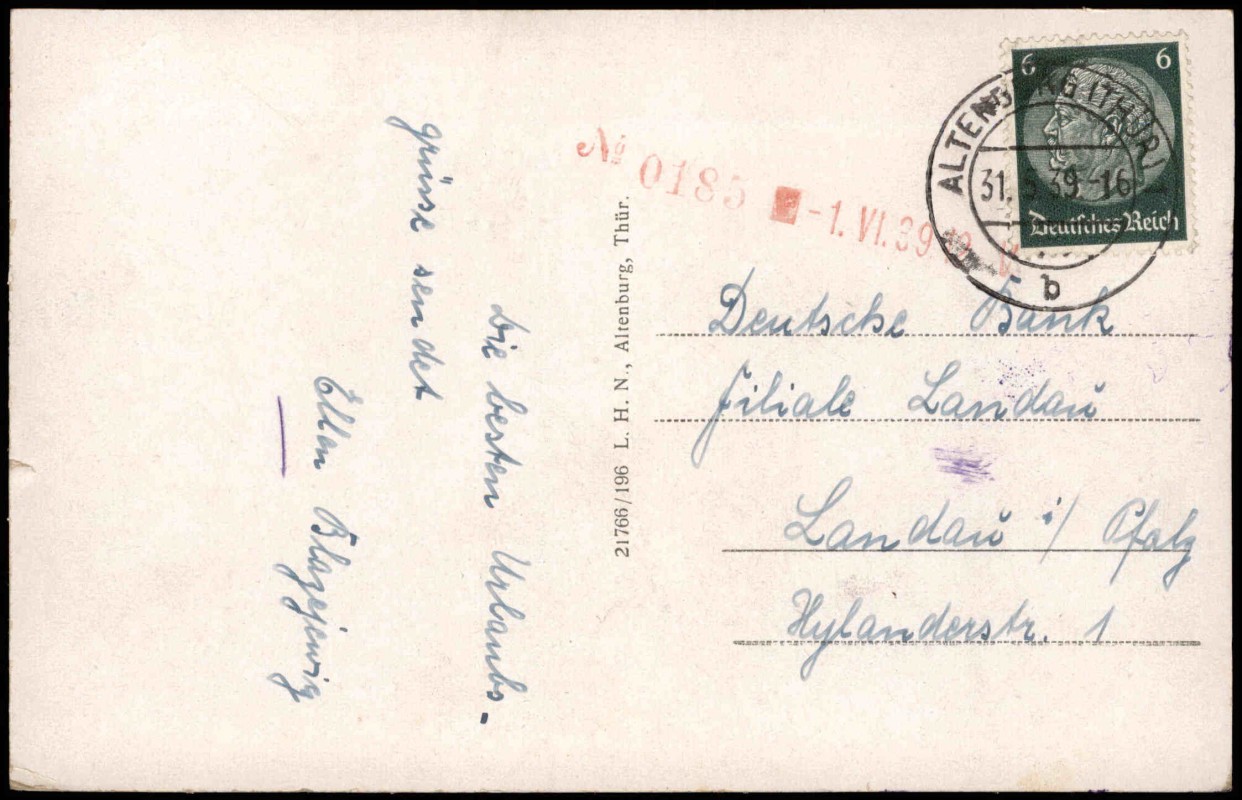 Die besten Urlaubs-
grüsse sendet
Ellen Blazejewig
21766/196 L. H. N., Altenburg, Thür.
№ 0185 -1. VI. 39
6 6
Deutsches Reich
ALTENBURG (THÜR)
31.5.39-16
b
Deutsche Bank
Filiale Landau
Landau i/ Pfalz
Hylanderstr. 1